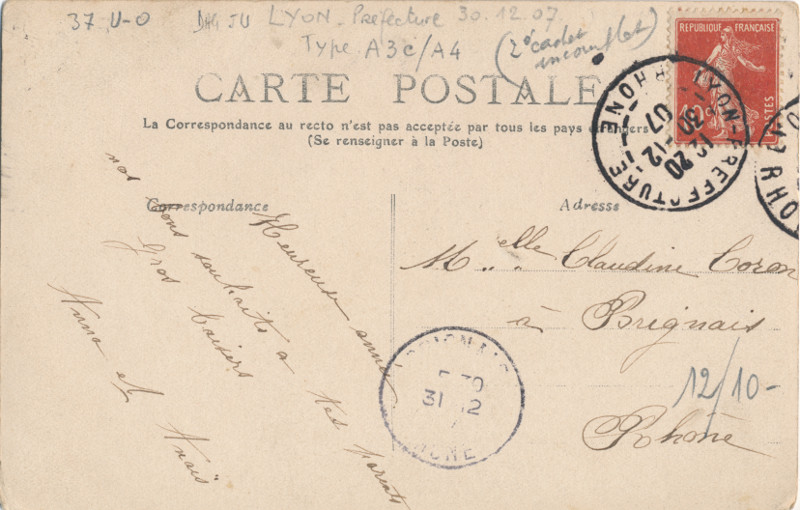 37 U-O
LYON - Préfecture 30.12.07
Type A3c/A4
(2e cachet
incomplet)
RÉPUBLIQUE FRANÇAISE
10
POSTES
CARTE POSTALE
La Correspondance au recto n'est pas acceptée par tous les pays étrangers
(Se renseigner à la Poste)
LYON-PREFECTURE
12 20
30 -12
07
RHONE
Correspondance
Adresse
Heureuse année
nos bons souhaits a tes parents
Gros baisers
Anna et Anaïs
Melle Claudine Coron
à Brignais
Rhône
BRIGNAIS
31 12
RHONE
12/10-